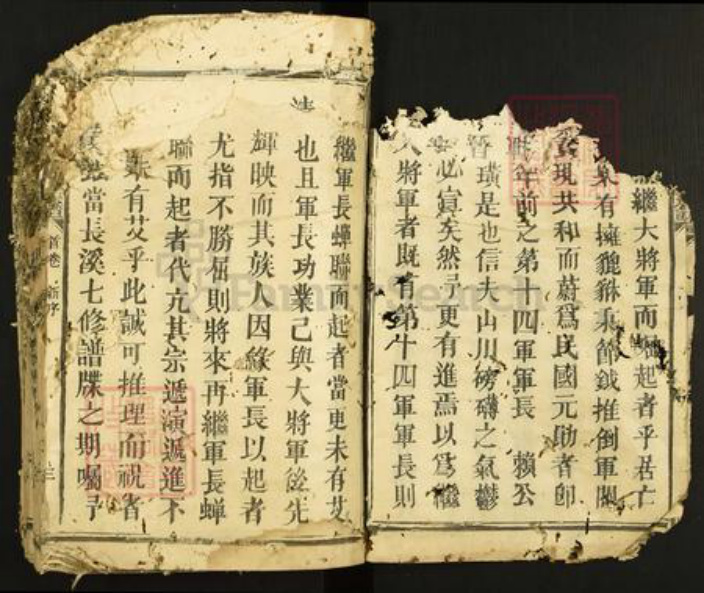 繼大將軍而崛起者乎居亡
泉有擁貔貅秉節鉞推倒軍閥
發現共和而蔚爲民國元勛者卽
昨年前之第十四軍軍長 賴公
晉璜是也信夫山川磅礴之氣鬱
必宣矣然予更有進焉以爲繼
大將軍者旣有第十四軍軍長則
繼軍長蟬聯而起者當更未有艾
也且軍長功業已與大將軍後先
輝映而其族人因緣軍長以起者
尤指不勝屈則將來再繼軍長蟬
聯而起者代亢其宗遞演遞進不
有艾乎此誠可推理而祝者
當長溪七修譜牒之期囑予
首卷 新序
三
FamilySearch